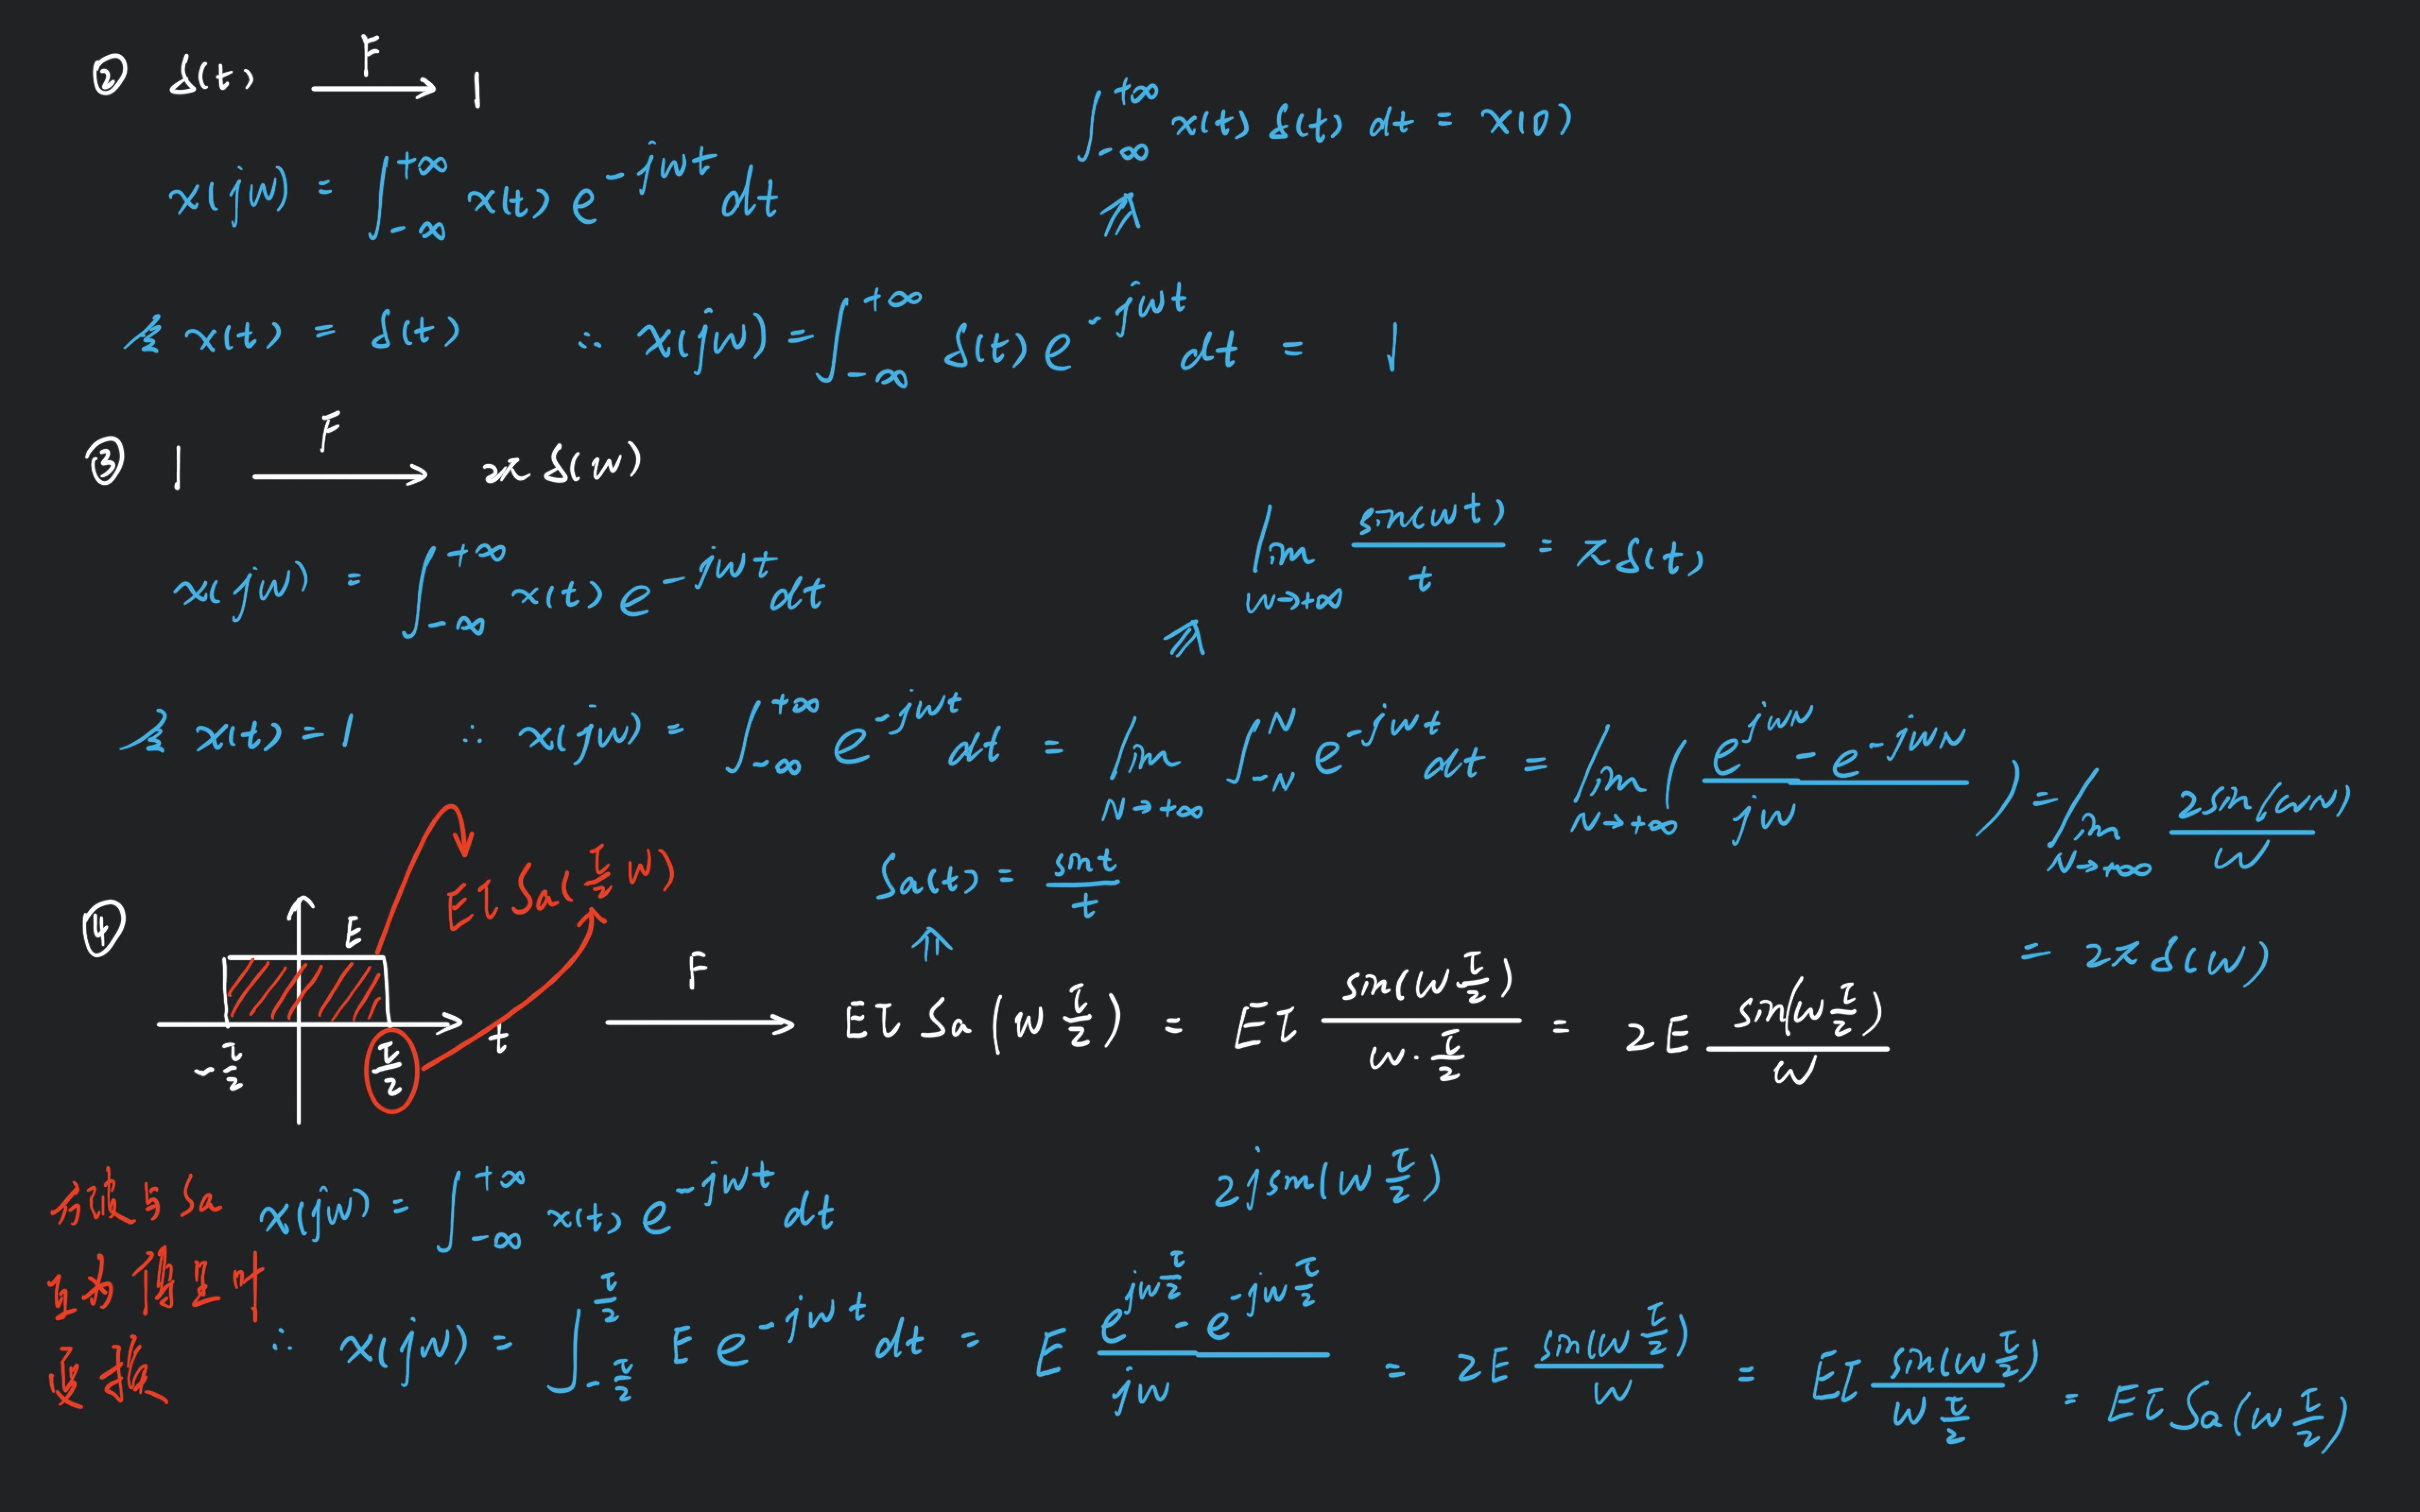 ② δ(t) F→ 1
∫_{-∞}^{+∞} x(t) δ(t) dt = x(0)
x(jw) = ∫_{-∞}^{+∞} x(t) e^{-jwt} dt
⇑
令 x(t) = δ(t) ∴ x(jw) = ∫_{-∞}^{+∞} δ(t) e^{-jwt} dt = 1
③ 1 F→ 2π δ(w)
lim_{w→+∞} sin(wt)/t = π δ(t)
x(jw) = ∫_{-∞}^{+∞} x(t) e^{-jwt} dt
⇑
令 x(t) = 1 ∴ x(jw) = ∫_{-∞}^{+∞} e^{-jwt} dt = lim_{N→+∞} ∫_{-N}^{N} e^{-jwt} dt = lim_{N→+∞} ( (e^{jwN} - e^{-jwN})/jw ) = lim_{N→+∞} 2sin(wN)/w
= 2π δ(w)
Eτ Sa(τ/2 w)
Sa(t) = sint/t
⇑
④ E
-τ/2 τ/2 t
F→ Eτ Sa(w τ/2) = Eτ sin(w τ/2)/(w·τ/2) = 2E sin(w τ/2)/w
方波与Sa
互为傅里叶
变换
x(jw) = ∫_{-∞}^{+∞} x(t) e^{-jwt} dt
2j sin(w τ/2)
∴ x(jw) = ∫_{-τ/2}^{τ/2} E e^{-jwt} dt = E (e^{jw τ/2} - e^{-jw τ/2})/jw = 2E sin(w τ/2)/w = Eτ sin(w τ/2)/(w τ/2) = Eτ Sa(w τ/2)